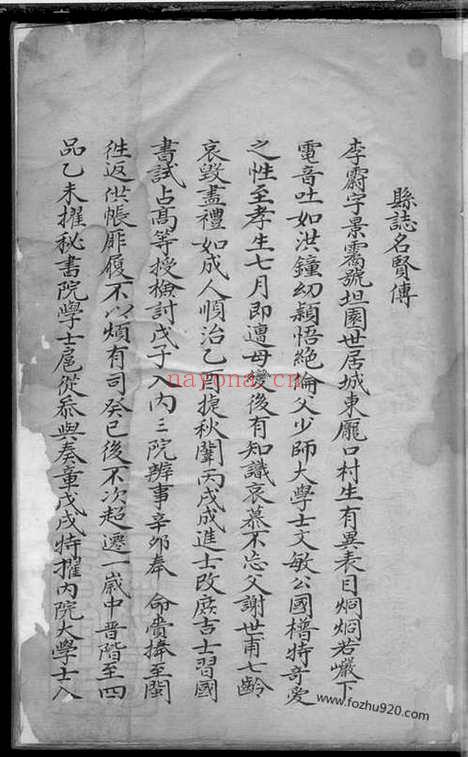 縣誌名賢傳
李霨字景霱號坦園世居城東龐口村生有異表目烱烱若巖下
電音吐如洪鐘幼穎悟絶倫父少師大學士文敏公國𣚴特奇愛
之性至孝生七月即遭母變後有知識哀慕不忘父謝世甫七齡
哀毀盡禮如成人順治乙酉捷秋闈丙戌成進士改庶吉士習國
書試占髙等授檢討戊子入內三院辨事辛卯奉 命賫捧至閩
徃返供帳厞履不以煩有司癸巳後不次超遷一歲中晋階至四
品乙未擢秘書院學士扈從叅與奏章戊戌特擢內院大學士入
nayona.cn
www.fozhu920.com